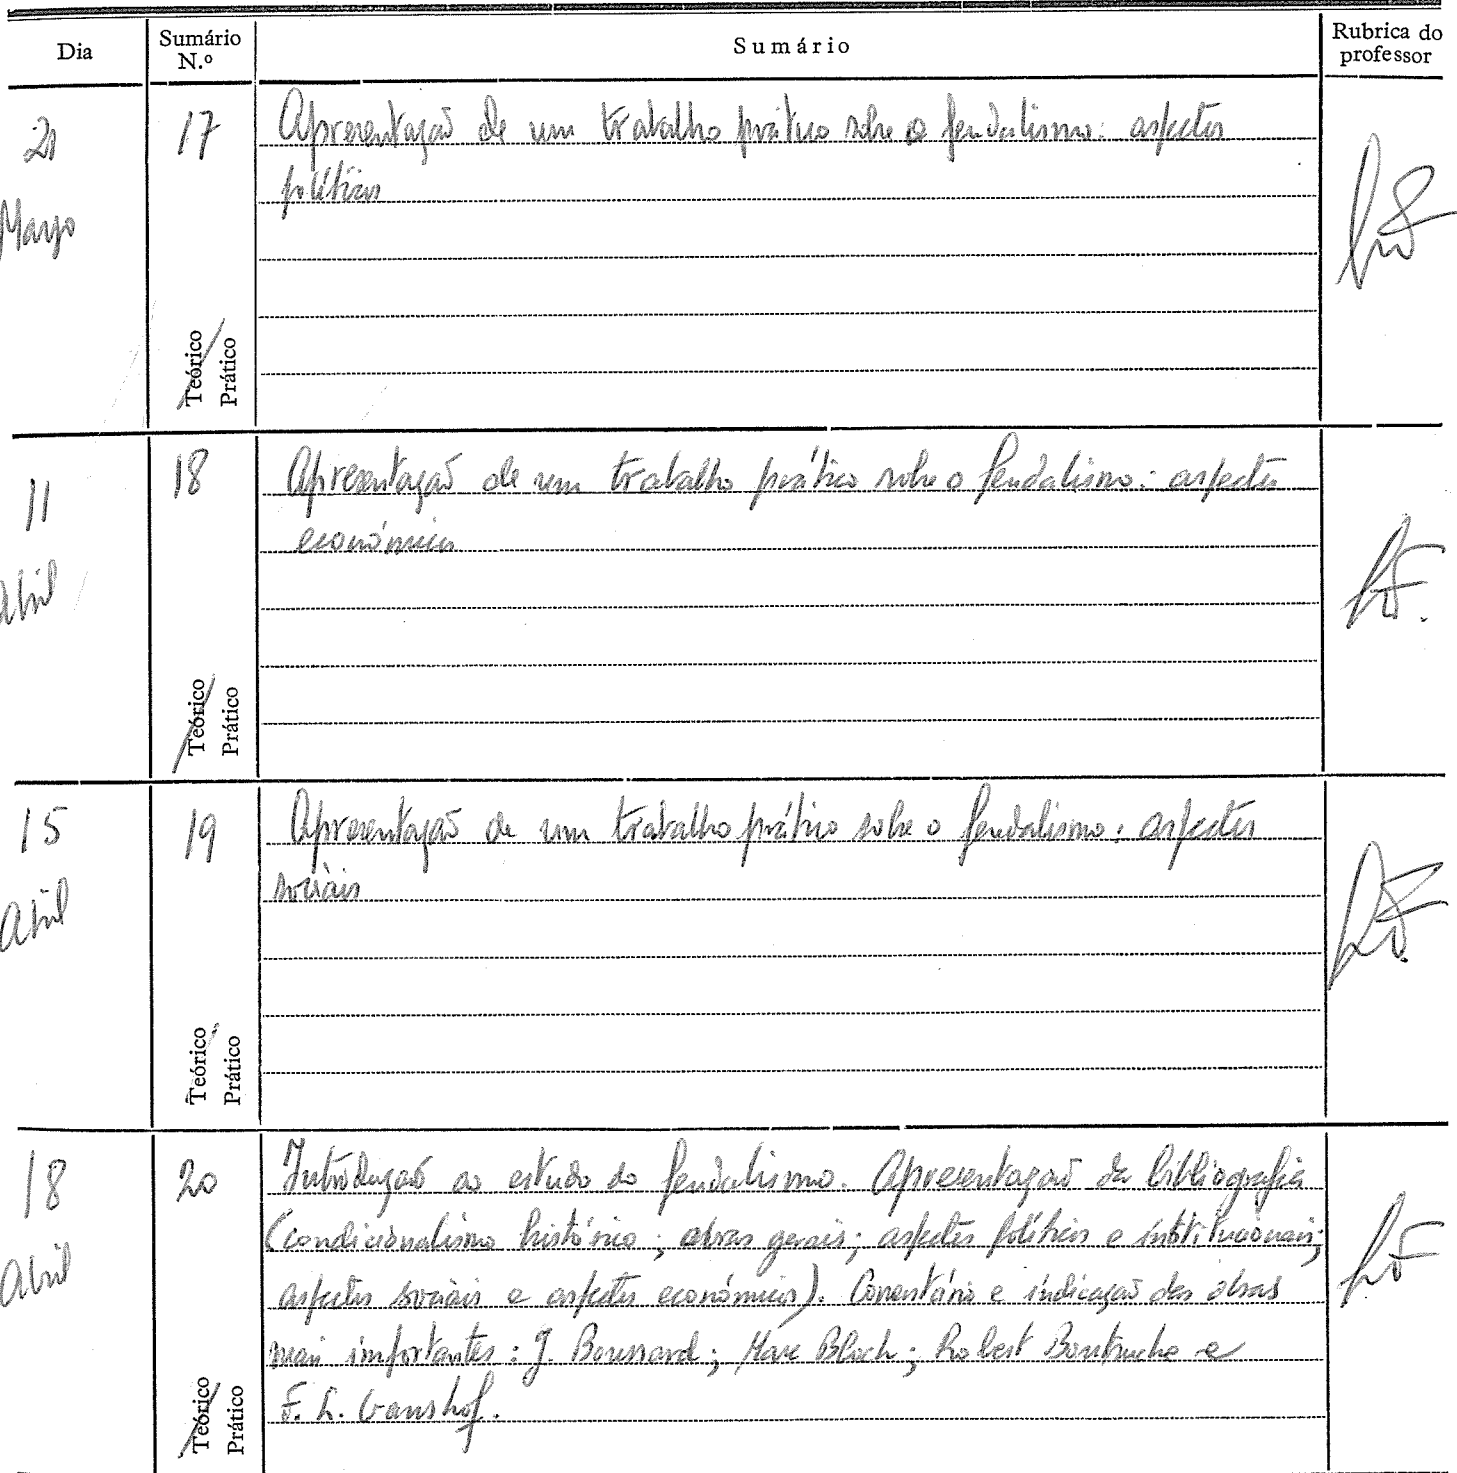 Dia
Sumário
N.º
Sumário
Rubrica do
professor
21
Março
17
Apresentação de um trabalho prático sobre o feudalismo: aspectos
políticos
Teórico
Prático
11
Abril
18
Apresentação de um trabalho prático sobre o feudalismo: aspectos
económicos
Teórico
Prático
15
Abril
19
Apresentação de um trabalho prático sobre o feudalismo: aspectos
sociais
Teórico
Prático
18
Abril
20
Introdução ao estudo do feudalismo. Apresentação da bibliografia
(condicionalismo histórico; obras gerais; aspectos políticos e institucionais;
aspectos sociais e aspectos económicos). Comentário e indicação das obras
mais importantes: J. Boussard; Marc Bloch; Robert Boutruche e
F. L. Ganshof.
Teórico
Prático